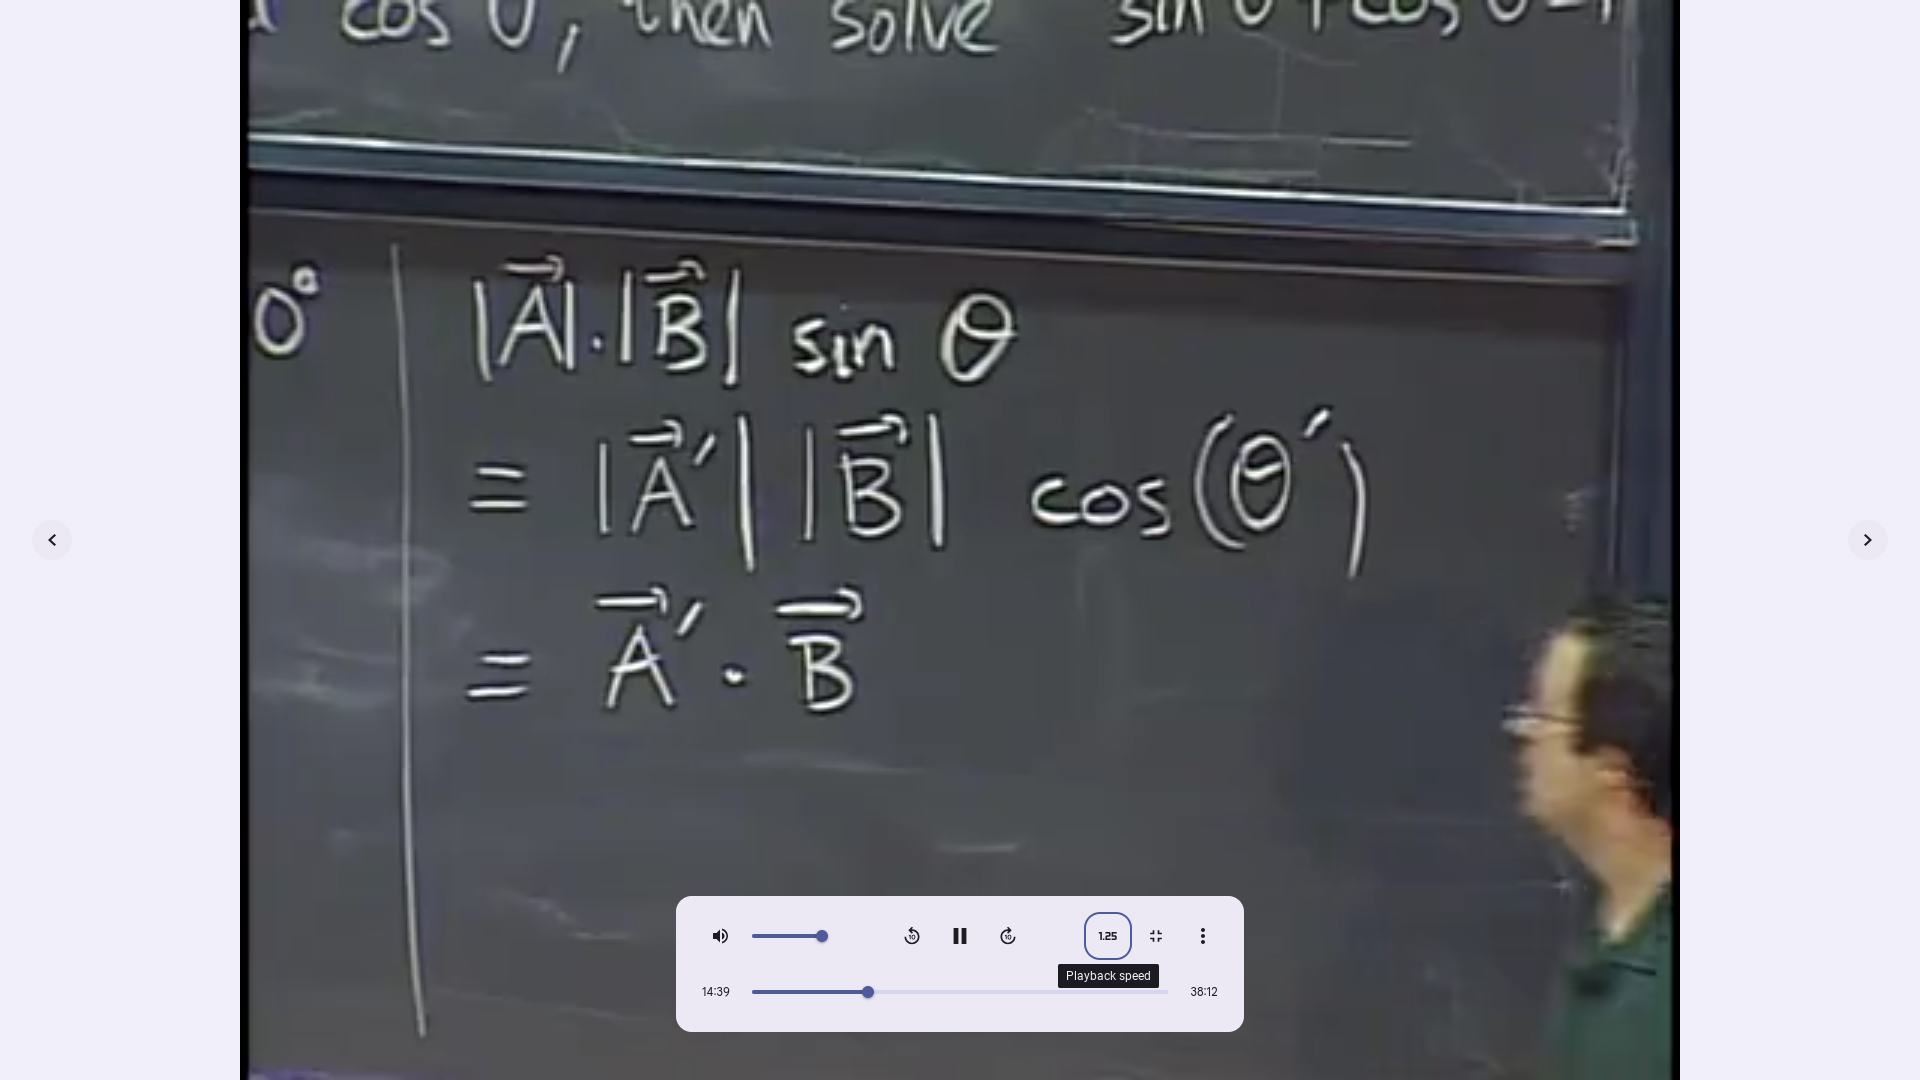 cos θ, then solve sin θ + cos θ = 1
0°
|A⃗|·|B⃗| sin θ
= |A⃗′| |B⃗| cos(θ′)
= A⃗′ · B⃗
10
10
1.25
Playback speed
14:39
38:12